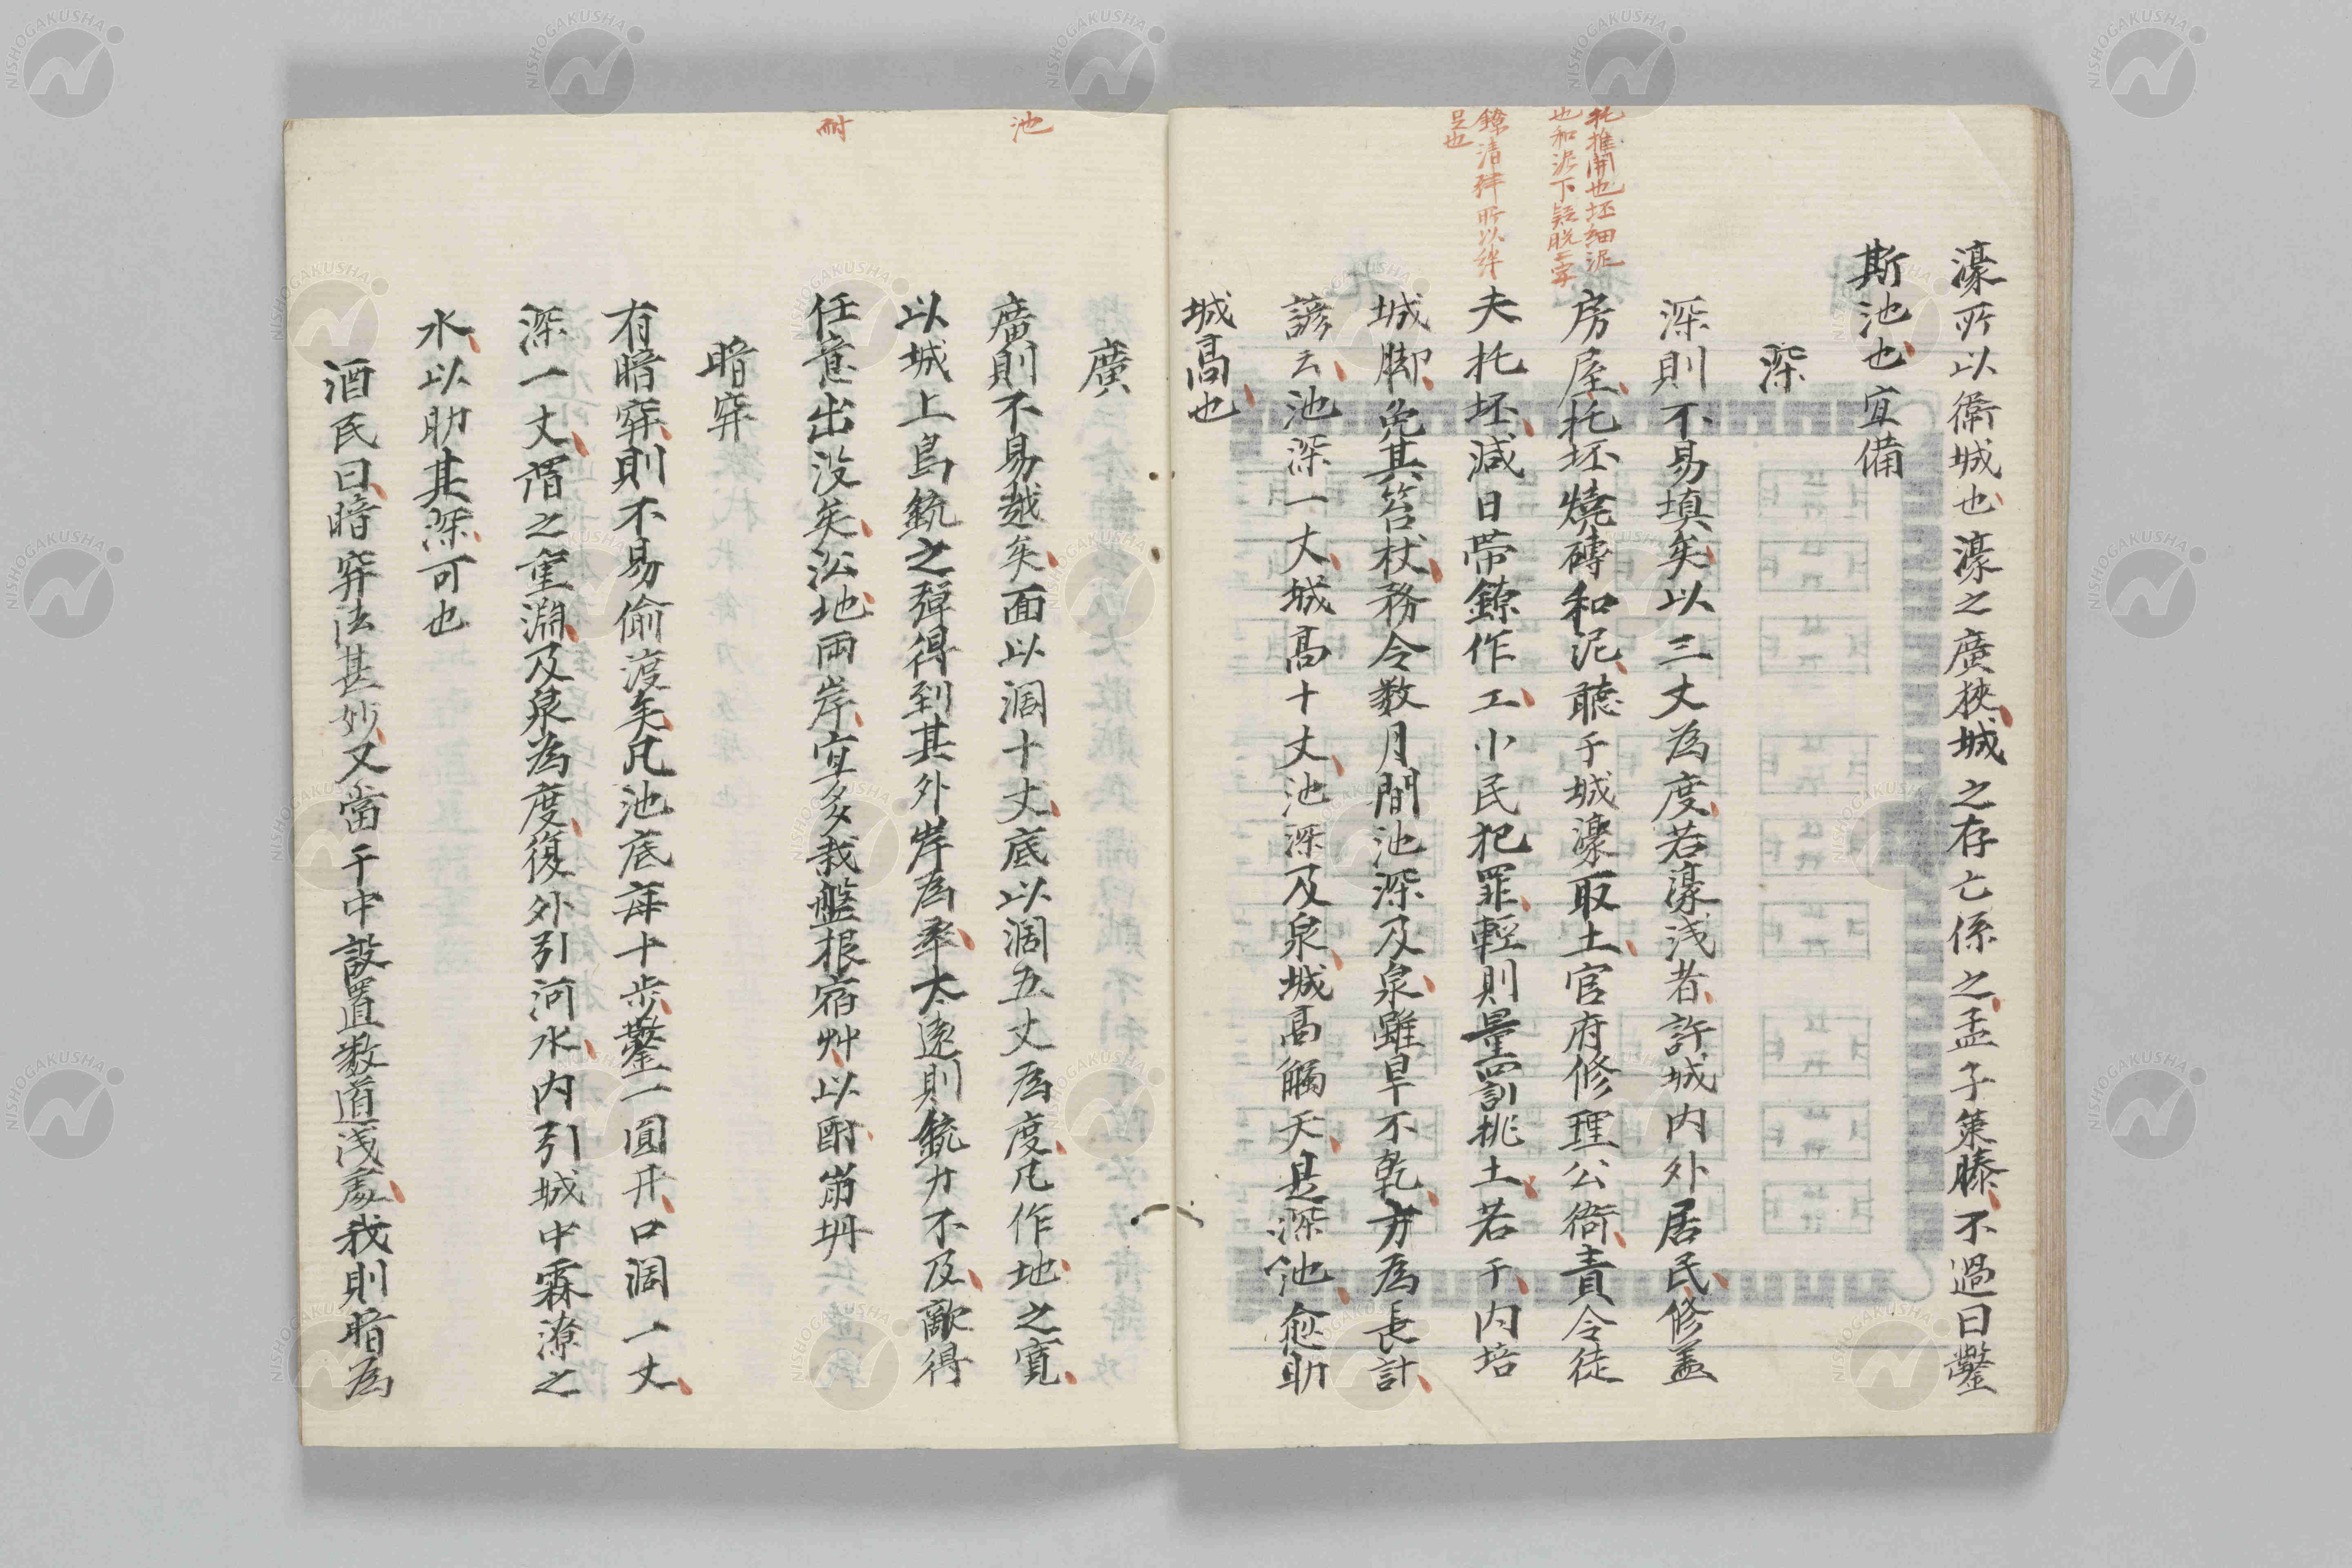 濠所以衛城也濠之廣狹城之存亡係之孟子策滕不過曰鑿
斯池也宜備
深
深則不易填矣以三丈為度若濠浅者許城内外居民修蓋
房屋托坯燒磚和泥聽于城濠取土官府修理公衙責令徒
夫托坯減日帶鐐作工小民犯罪輕則量罰挑土若干内培
城脚免其笞杖務令数月間池深及泉雖旱不乾方為長計
諺云池深一丈城高十丈池深及泉城高觸天是深池愈助
城高也
托推開也坯細泥
也和泥下疑脱三字
鐐清絆所以絆
足也
廣
廣則不易越矣面以濶十丈底以濶五丈為度凡作地之寬
以城上鳥銃之彈得到其外岸為率太遠則銃力不及敵得
任意出沒矣沿地兩岸宜多栽盤根宿艸以酎崩坍
暗穽
有暗穽則不易偷渡矣凡池底每十步鑿一圓井口濶一丈
深一丈謂之重淵及泉為度復外引河水内引城中霖潦之
水以助其深可也
酒民曰暗穽法甚妙又當于中設置数道浅處我則暗為
池
耐
NISHOGAKUSHA